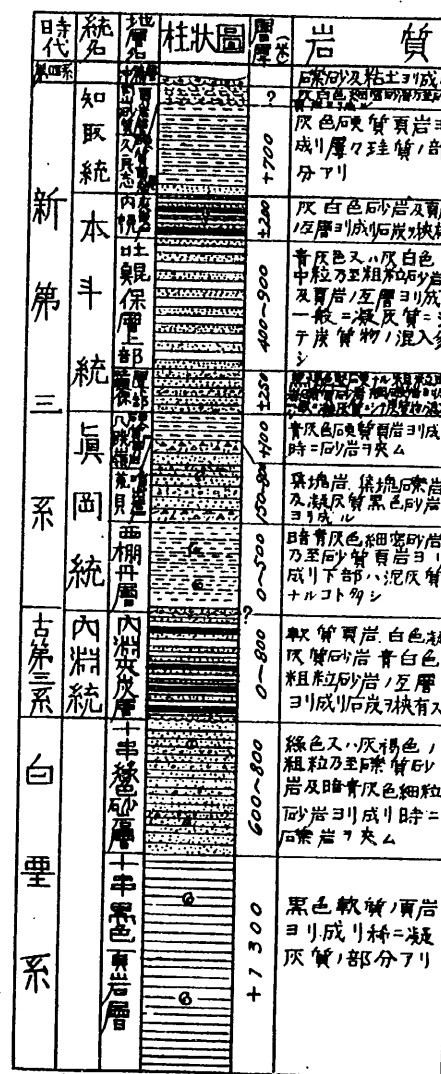 時代 統名 地層名 柱狀圖 層厚(米) 岩質
第四系
礫砂及粘土ヨリ成
新第三系
知取統
?
灰色硬質頁岩ヨ
成リ屢々珪質ノ部
分アリ
+700
本斗統
内幌
±200
灰白色砂岩及頁
ノ互層ヨリ成リ石炭ヲ挾
層上部
400~900
青灰色又ハ灰白色
中粒乃至粗粒砂岩
及頁岩ノ互層ヨリ成
一般ニ凝灰質ニシ
テ炭質物ノ混入多
シ
±250
眞岡統
+100
青灰色硬質頁岩ヨリ成
時ニ砂岩ヲ夾ム
集塊岩、集塊礫岩
及凝灰質黑色砂岩
ヨリ成ル
西棚丹層
0~500
暗靑灰色細密砂岩
乃至砂質頁岩ヨリ
成リ下部ハ泥灰質
ナルコト多シ
?
古第三系
内淵統
内淵夾炭層
0~800
軟質頁岩、白色凝
灰質砂岩靑白色
粗粒砂岩ノ互層
ヨリ成リ石炭ヲ挾有ス
白堊系
十串綠色砂岩層
600~800
綠色又ハ灰褐色ノ
粗粒乃至礫質砂
岩及暗靑灰色細粒
砂岩ヨリ成リ時ニ
礫岩ヲ夾ム
十串黑色頁岩層
+1300
黑色軟質ノ頁岩
ヨリ成リ稀ニ凝
灰質ノ部分アリ